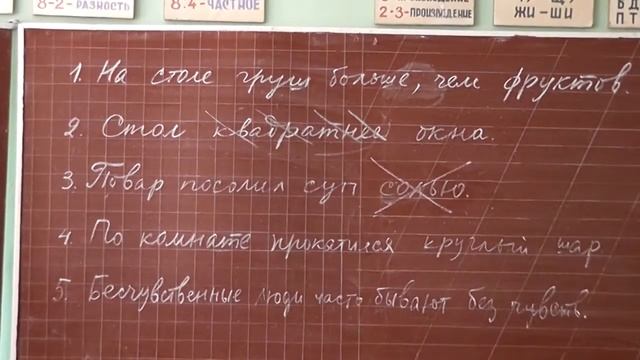 8-2-РАЗНОСТЬ
8:4-ЧАСТНОЕ
2·3-ПРОИЗВЕДЕНИЕ
ЖИ-ШИ
П Т
1. На столе груш больше, чем фруктов.
2. Стол квадратнее окна.
3. Повар посолил суп солью.
4. По комнате прокатился круглый шар
5. Бесчувственные люди часто бывают без чувств.